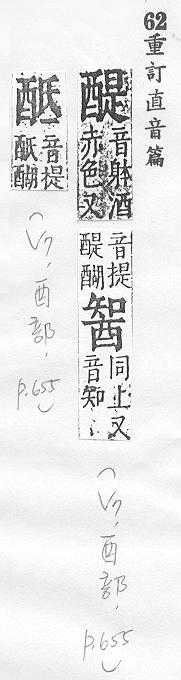 62重訂直音篇
醍
音躰酒
赤色又
音提
醍醐
同上又
音知
(V7,酉部,
p.655)
音提
醐
(V7,酉部,
p.655)